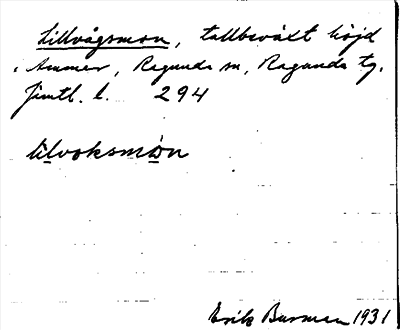 Lillvågsmon, tallbeväxt höjd
i Ammer, Ragunda sn, Ragunda tg.
Jämtl. l. 294
lilvoksmòn
Erik Burman 1931